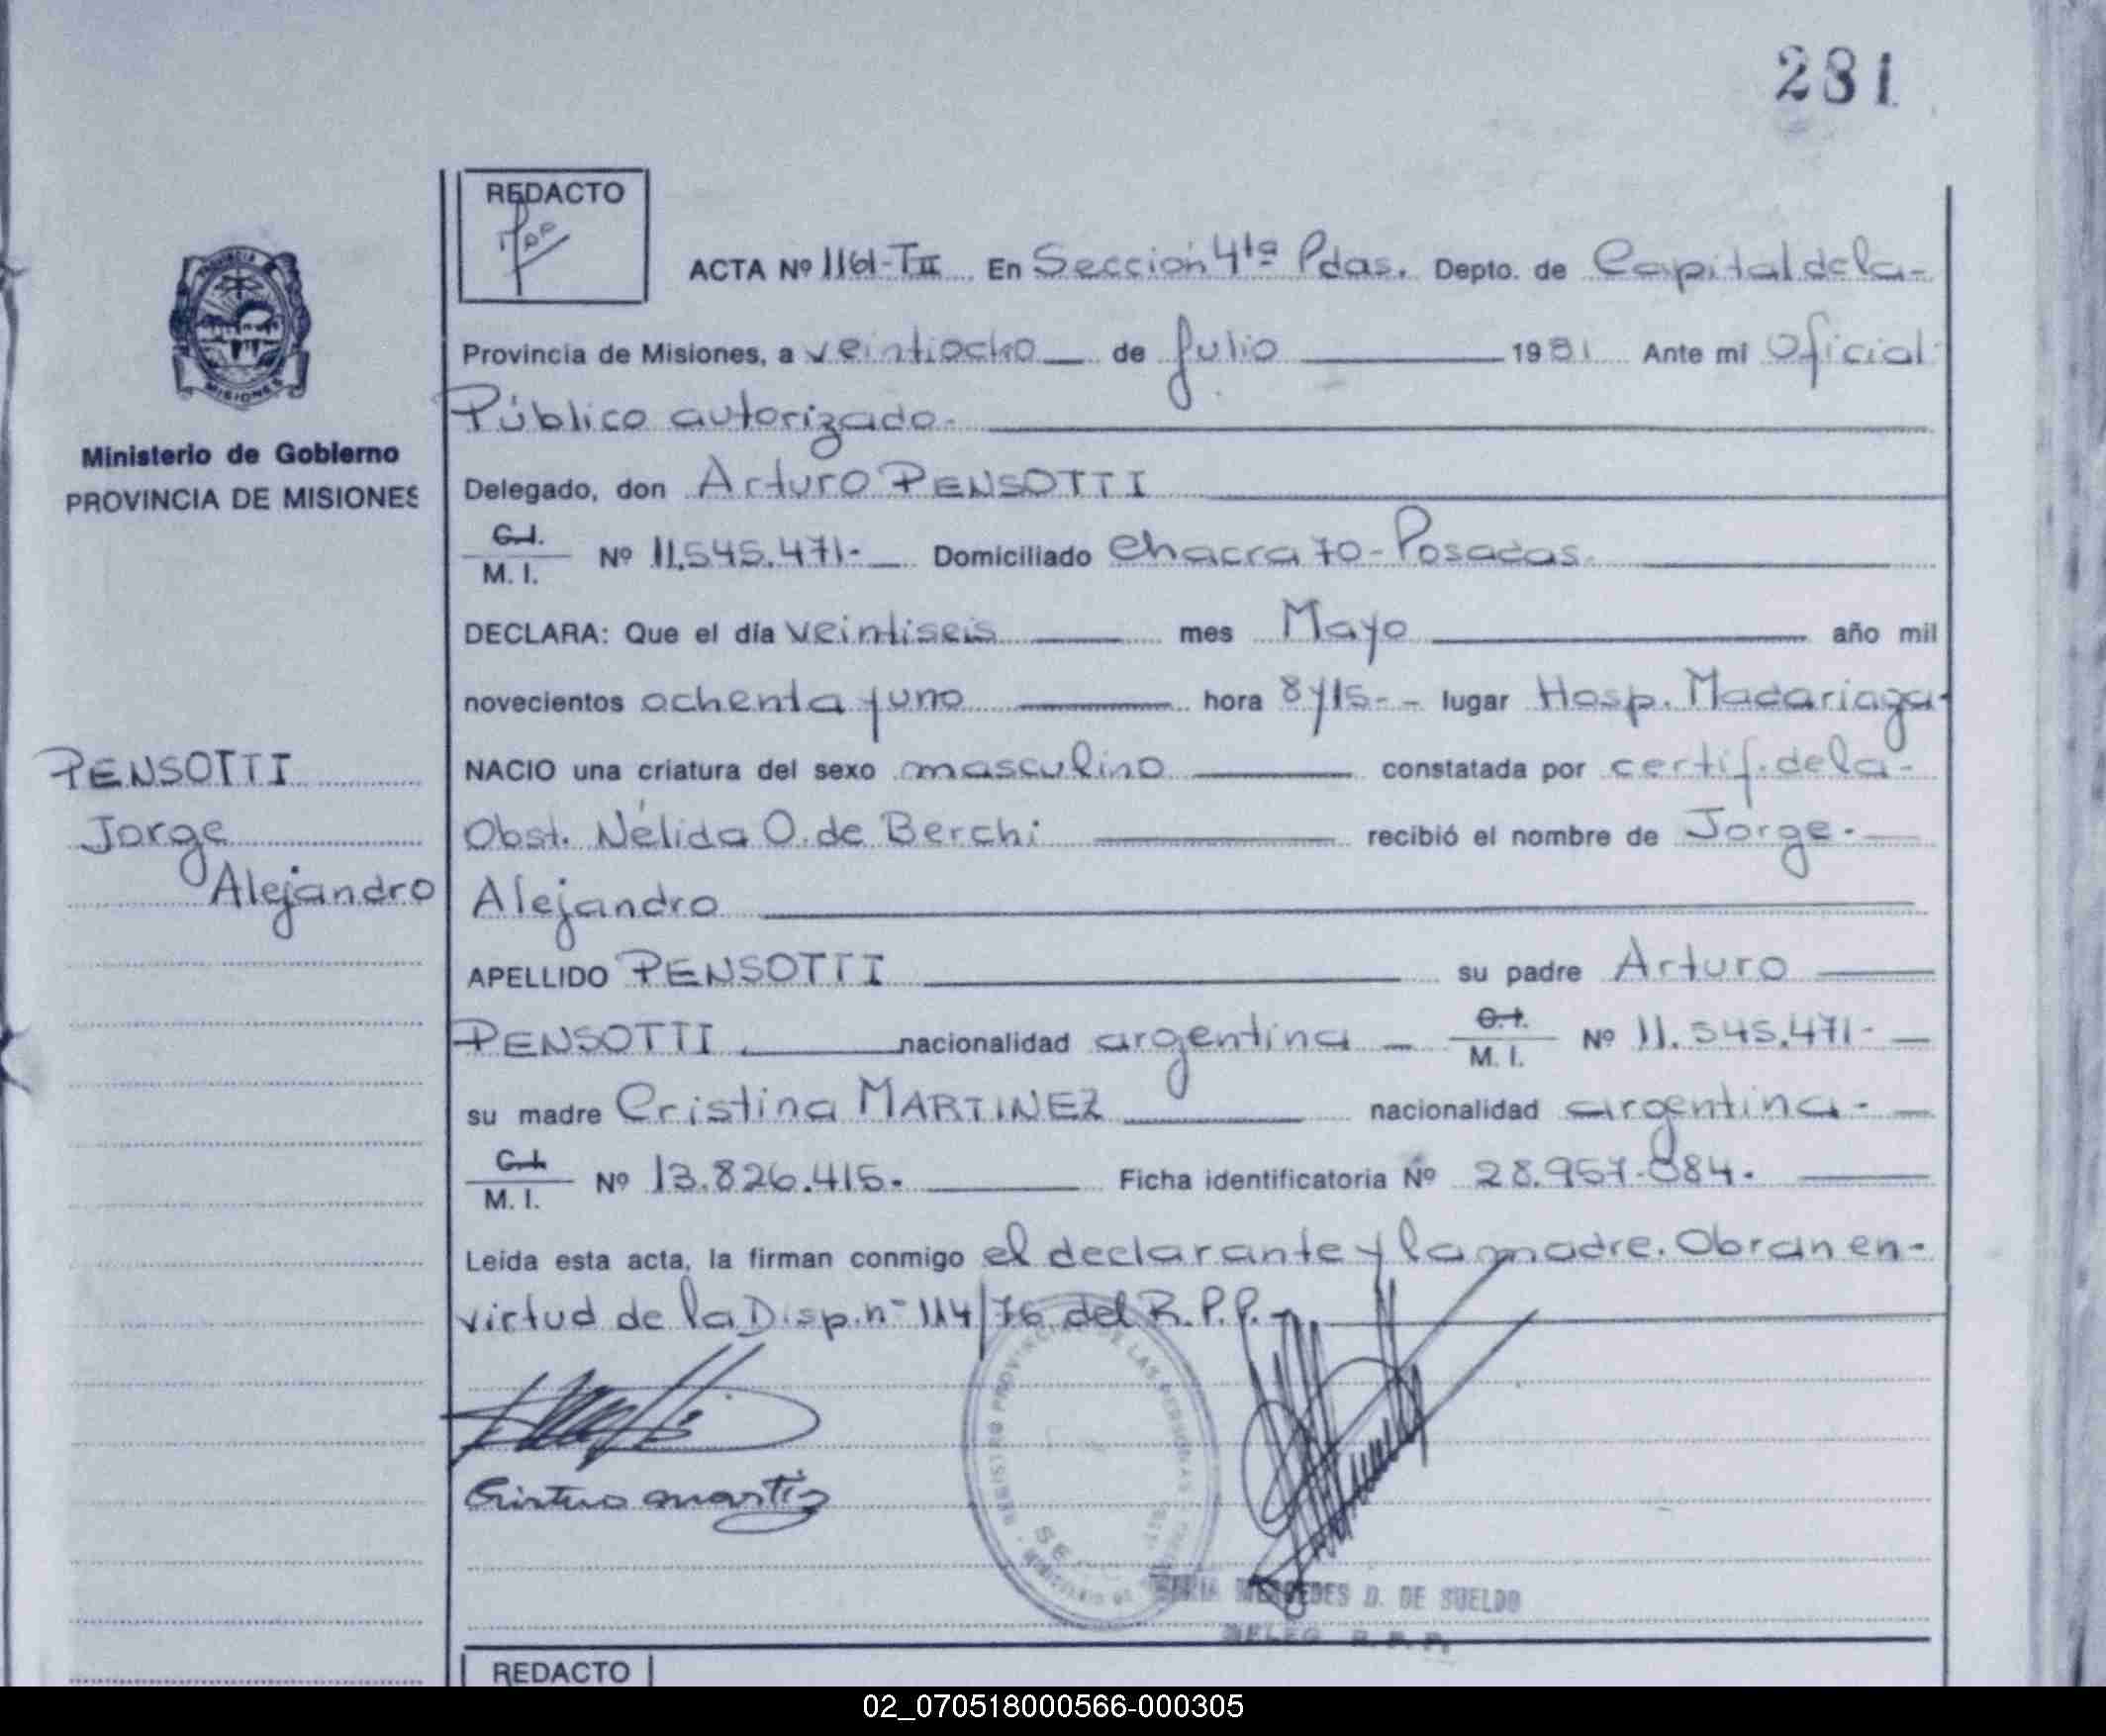 231
REDACTO
ACTA Nº 1161-TII En Sección 4ta Pdas. Depto. de Capital de la-
Provincia de Misiones, a veintiocho de Julio 1981 Ante mi Oficial
Público autorizado.
Ministerio de Gobierno
PROVINCIA DE MISIONES
Delegado, don Arturo PENSOTTI
C.I.
M. I. Nº 11.545.471.- Domiciliado Chacra 70-Posadas.
DECLARA: Que el día veintiseis mes Mayo año mil
novecientos ochenta y uno hora 8y15.- lugar Hosp. Madariaga.
PENSOTTI
Jorge
Alejandro
NACIO una criatura del sexo masculino constatada por certif. de la-
Obst. Nélida O. de Berchi recibió el nombre de Jorge.
Alejandro
APELLIDO PENSOTTI su padre Arturo
PENSOTTI nacionalidad argentina C.I.
M. I. Nº 11.545.471-
su madre Cristina MARTINEZ nacionalidad argentina.-
C.I.
M. I. Nº 13.826.415. Ficha identificatoria Nº 28.957.884.
Leída esta acta, la firman conmigo el declarante y la madre. Obran en-
virtud de la Disp. nº 114/76 del R.P.P.-
REGISTRO PROVINCIAL DE LAS PERSONAS
MERCEDES D. DE SUELDO
REDACTO
02_070518000566-000305